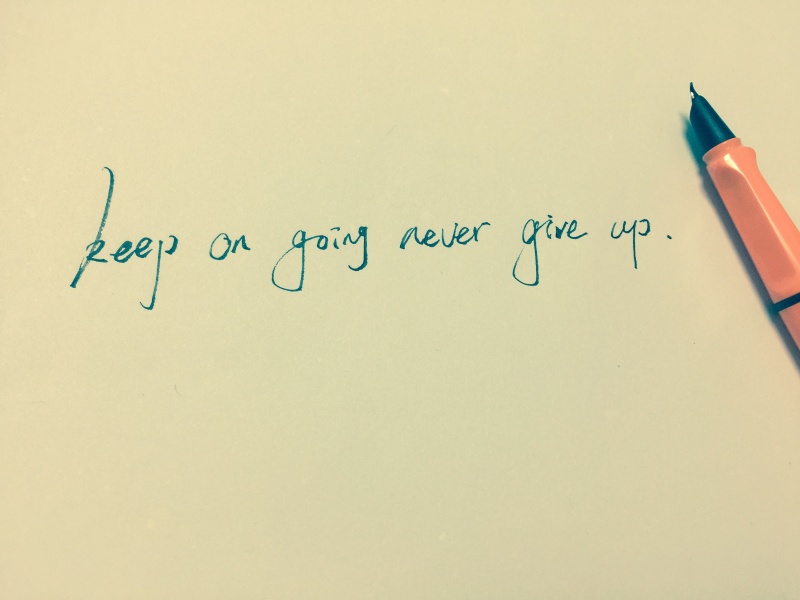 keep on going never give up.